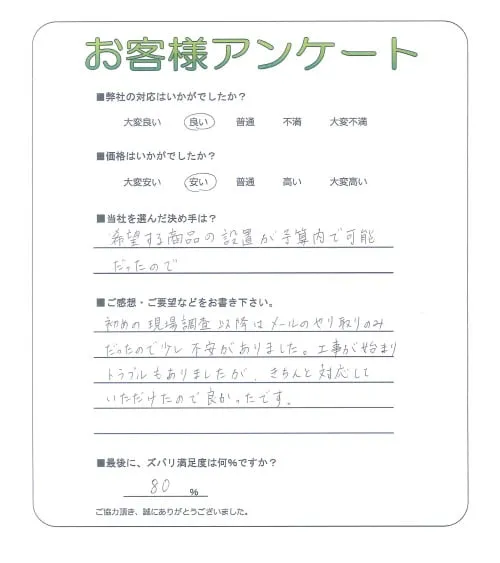 お客様アンケート
■弊社の対応はいかがでしたか?
大変良い 良い 普通 不満 大変不満
■価格はいかがでしたか?
大変安い 安い 普通 高い 大変高い
■当社を選んだ決め手は?
希望する商品の設置が予算内で可能
だったので
■ご感想・ご要望などをお書き下さい。
初めの現場調査以降はメールのやり取りのみ
だったので少し不安がありました。工事が始まり
トラブルもありましたが、きちんと対応して
いただけたので良かったです。
■最後に、ズバリ満足度は何%ですか?
80 %
ご協力頂き、誠にありがとうございました。